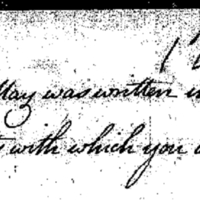 May was written
with which you